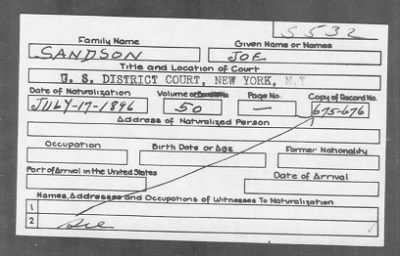 S532
Family Name Given Name or Names
SANDSON JOE
Title and Location of Court
U. S. DISTRICT COURT, NEW YORK, N.Y
Date of Naturalization Volume or Page No. Copy of Record No.
JULY-17-1896 50 — 675-676
Address of Naturalized Person
Occupation Birth Date or Age Former Nationality
Port of Arrival in the United States Date of Arrival
Names, Addresses and Occupations of Witnesses To Naturalization
1
2